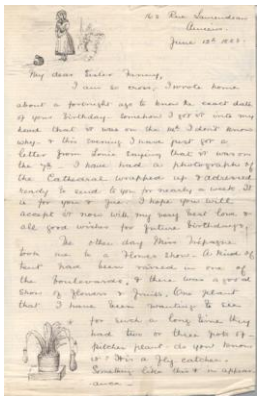 162 Rue
Amiens
June 1888
My dear Sister
I am so cross, I wrote home
about a fortnight ago to know the exact date
of your Birthday. Somehow I got it into my
head that it was on the 14th I don't know
why. & this evening I have just got a
letter from saying that it was on
the 7th. I have had a photograph of
the Cathedral wrapped up & addressed
ready to send to you for nearly a week. It
is for you & I hope you will
accept it now with my very best love &
all good wishes for future Birthdays.
The other day Miss
took me to a Flower Show. A kind of
tent had been raised in one of
the boulevards, & there was a good
show of flowers & fruits. One plant
that I have been wanting to see
for such a long time they
had two or three pots of
pitcher plant. do you know
it? It is a fly catcher.
Something like this & in appear-
ance.